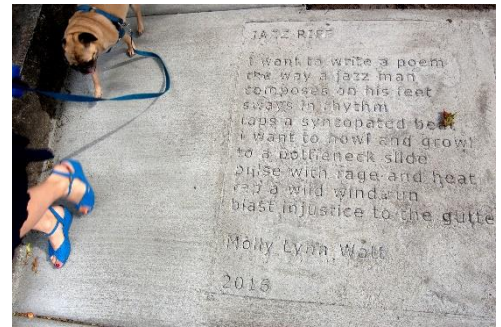 JAZZ RIFF
I want to write a poem
the way a jazz man
composes on his feet
sways in rhythm
raps a syncopated beat
I want to howl and growl
to a bottleneck slide
pulse with rage and heat
rap a wild wind-up
blast injustice to the gutte
Molly Lynn Watt
2013